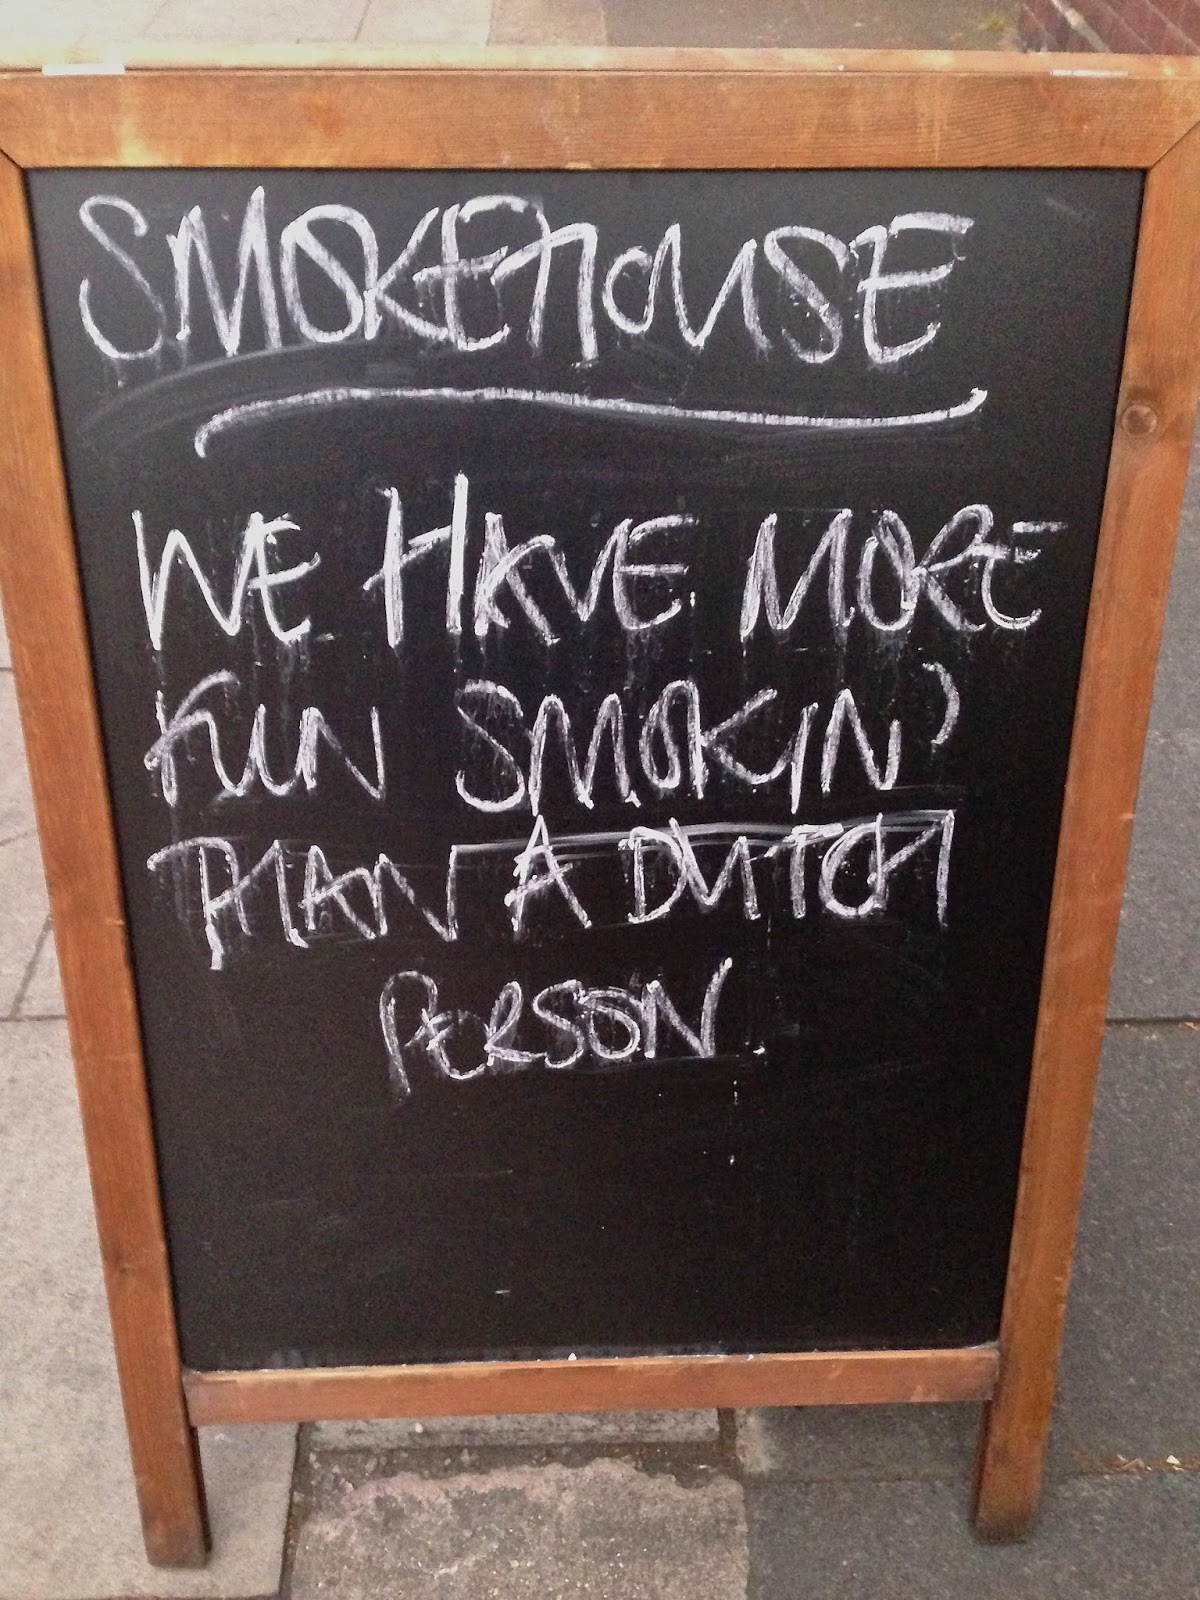 SMOKEHOUSE
WE HAVE MORE
FUN SMOKIN'
THAN A DUTCH
PERSON.